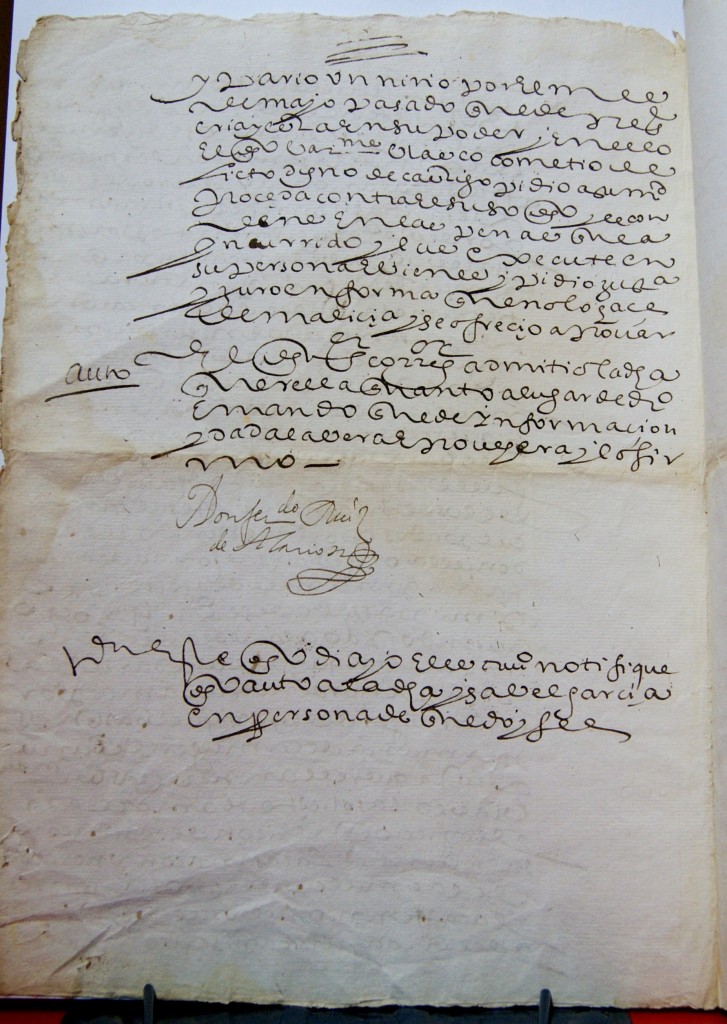 y pario un niño por el mes
de mayo pasado que de pres
cria y esta en su poder y en ello
el dho bar.me blasco cometio de
licto digno de castigo pidio a su md
proceda contra el suso dho y le con
dene en las penas que a
yncurrido y las execute en
su persona e vienes y pidio justa
y juro en forma que no lo hace
de malicia y se ofrecio a provar
auto
El dho sr corregor admitio la dha
querella quanto a lugar de dro
E mando que de ynformacion
y dada la vera E proveera y lo fir
mo
Don ferdo Ruiz
de Alarcon
En este dho dia yo el escriuo notifique
el dho auto a la dha ysavel garcia
en persona de que doy fee